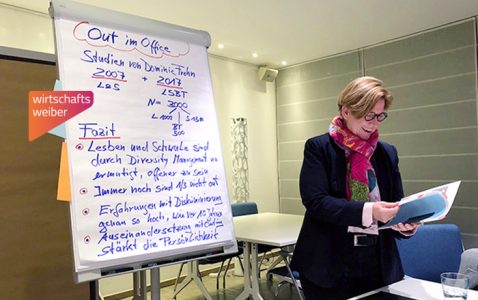 Out im Office
Studien von Dominic Frohn
2007 + 2017
LSB LSBT
N= 3000
L 1000
BT
500
Fazit
wirtschafts
weiber
Lesben und Schwule sind
durch Diversity Managment
ermutigt, offener zu sein
Immer noch sind 1/3 nicht out
Erfahrungen mit Diskriminierung
genau so hoch, wie vor 10 Jahren
Auseinandersetzung mit
stärkt die Persönlichkeit